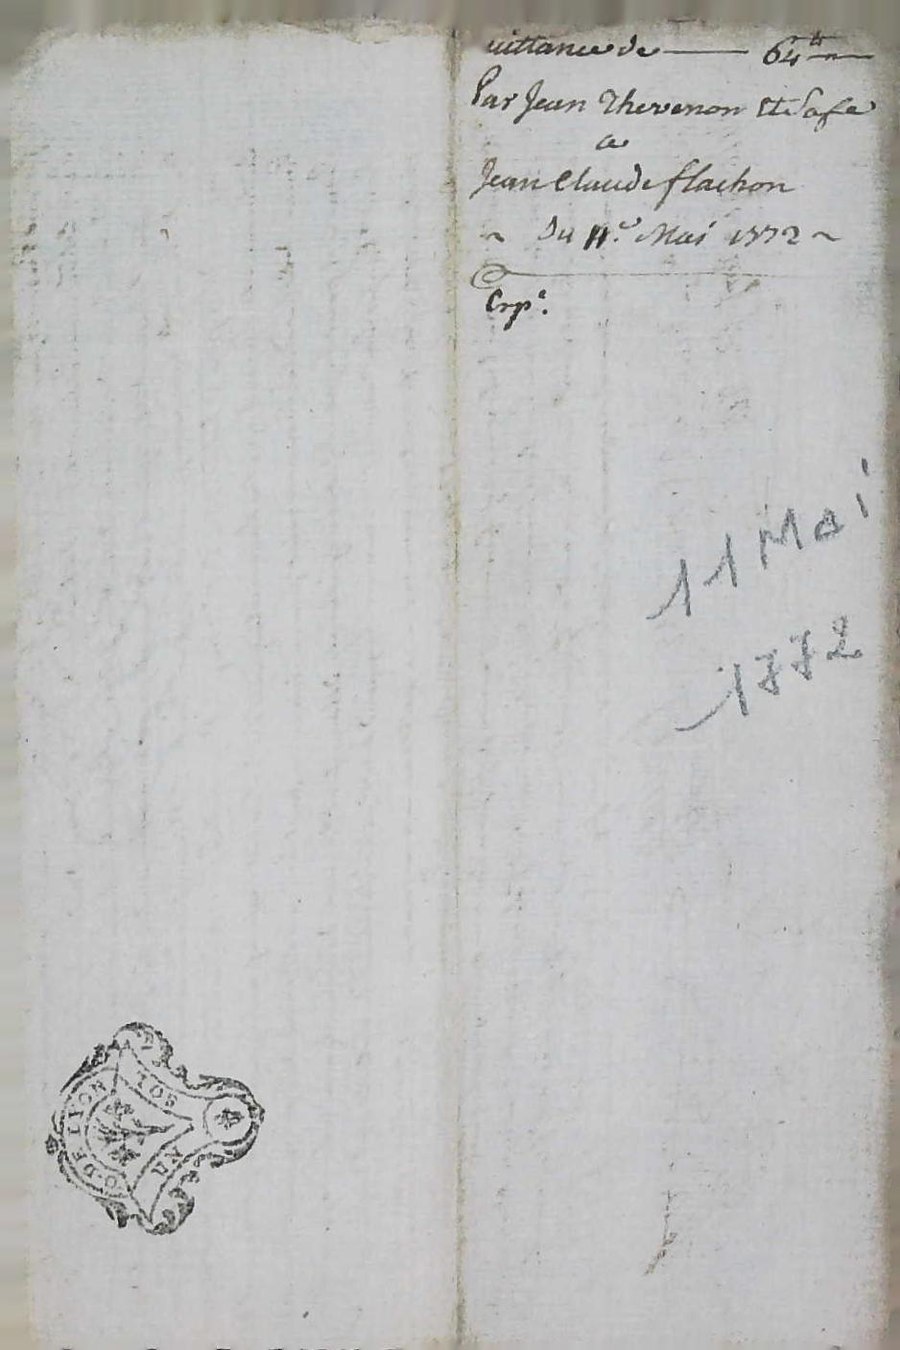 uittance de —— 64ᵗᵗ
Par Jean Thevenon Et Safe
a
Jean Claude flachon
~ Du 11.ᵉ Mai 1772 ~
Expᵉ.
11 Mai
1772
G. DE LYON